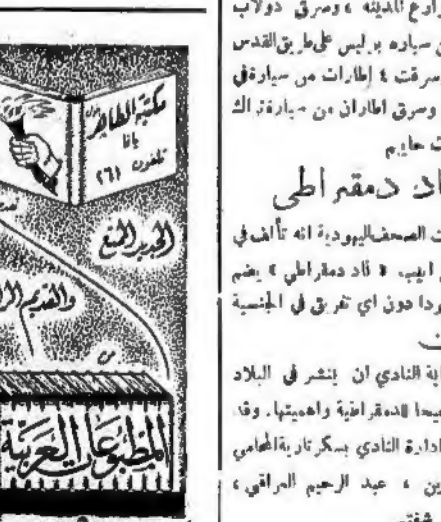 وارع المدينه ، وسرق دولاب
سياره بوليس على طريق القدس
سرقت ٤ إطارات من سيارة في
وسرق اطاران من سيارة
حاييم
اد دمقراطي
ت الصحف اليهودية انه تألف في
ابيب « ناد دمقراطي » يضم
ردا دون اي تفريق في الجنسية
اية النادي ان ينشر في البلاد
للدمقراطية واهميتها. وقد
ادارة النادي بسكرتارية المحامي
ين ، عبد الرحيم العراقي ،
مكتبة الطاهر
يافا
تلفون ٢٦١
الجديد الممتع
والقديم
من
المطبوعات العربية